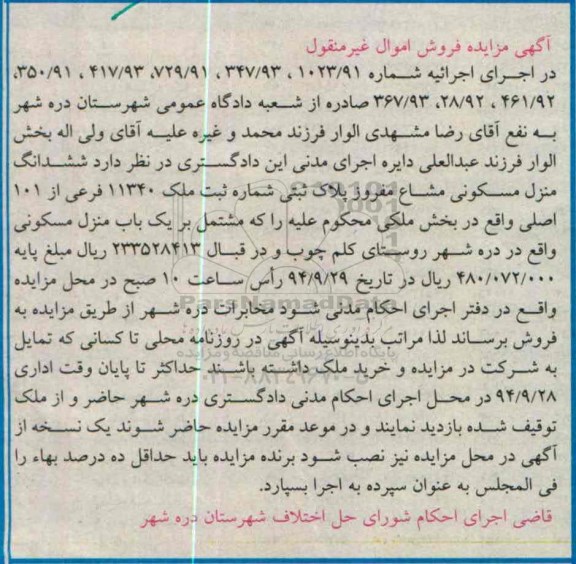 آگهی مزایده فروش اموال غیرمنقول
در اجـرای اجرائیه شـماره ۱۰۲۳/۹۱ ، ۳۴۷/۹۳ ، ۷۲۹/۹۱، ۴۱۷/۹۳ ، ۳۵۰/۹۱،
۴۶۱/۹۲ ، ۲۸/۹۲، ۳۶۷/۹۳ صادره از شـعبه دادگاه عمومی شهرسـتان دره شهر
بـه نفع آقای رضا مشـهدی الوار فرزند محمد و غیره علیـه آقای ولی اله بخش
الوار فرزند عبدالعلی دایره اجرای مدنی این دادگستری در نظر دارد ششدانگ
منزل مسکونی مشـاع مفروز پلاک ثبتی شماره ثبت ملک ۱۱۳۴۰ فرعی از ۱۰۱
اصلی واقع در بخش ملکی محکوم علیه را که مشتمل بر یک باب منزل مسکونی
واقع در دره شهر روستای کلم چوب و در قبـال ۲۳۳۵۲۸۴۱۳ ریال مبلغ پایه
۴۸۰/۰۷۲/۰۰۰ ریال در تاریخ ۹۴/۹/۲۹ رأس سـاعت ۱۰ صبح در محل مزایده
واقـع در دفتر اجرای احکام مدنی شود مخابرات دره شهر از طریق مزایده به
فروش برساند لذا مراتب بدینوسیله آگهی در روزنامه محلی تا کسانی که تمایل
به شرکت در مزایده و خرید ملک داشته باشند حداکثر تا پایان وقت اداری
۹۴/۹/۲۸ در محـل اجرای احکام مدنی دادگستری دره شهر حاضر و از ملک
توقیف شده بازدید نمایند و در موعد مقرر مزایده حاضر شوند یک نسخه از
آگهی در محل مزایده نیز نصب شـود برنده مزایده باید حداقل ده درصد بهاء را
فی المجلس به عنوان سپرده به اجرا بسپارد.
قاضی اجرای احکام شورای حل اختلاف شهرستان دره شهر
ParsNamadData
پایگاه اطلاع رسانی مناقصه و مزایده
۰۲۱-۸۸۳۴۹۶۷۰-۵